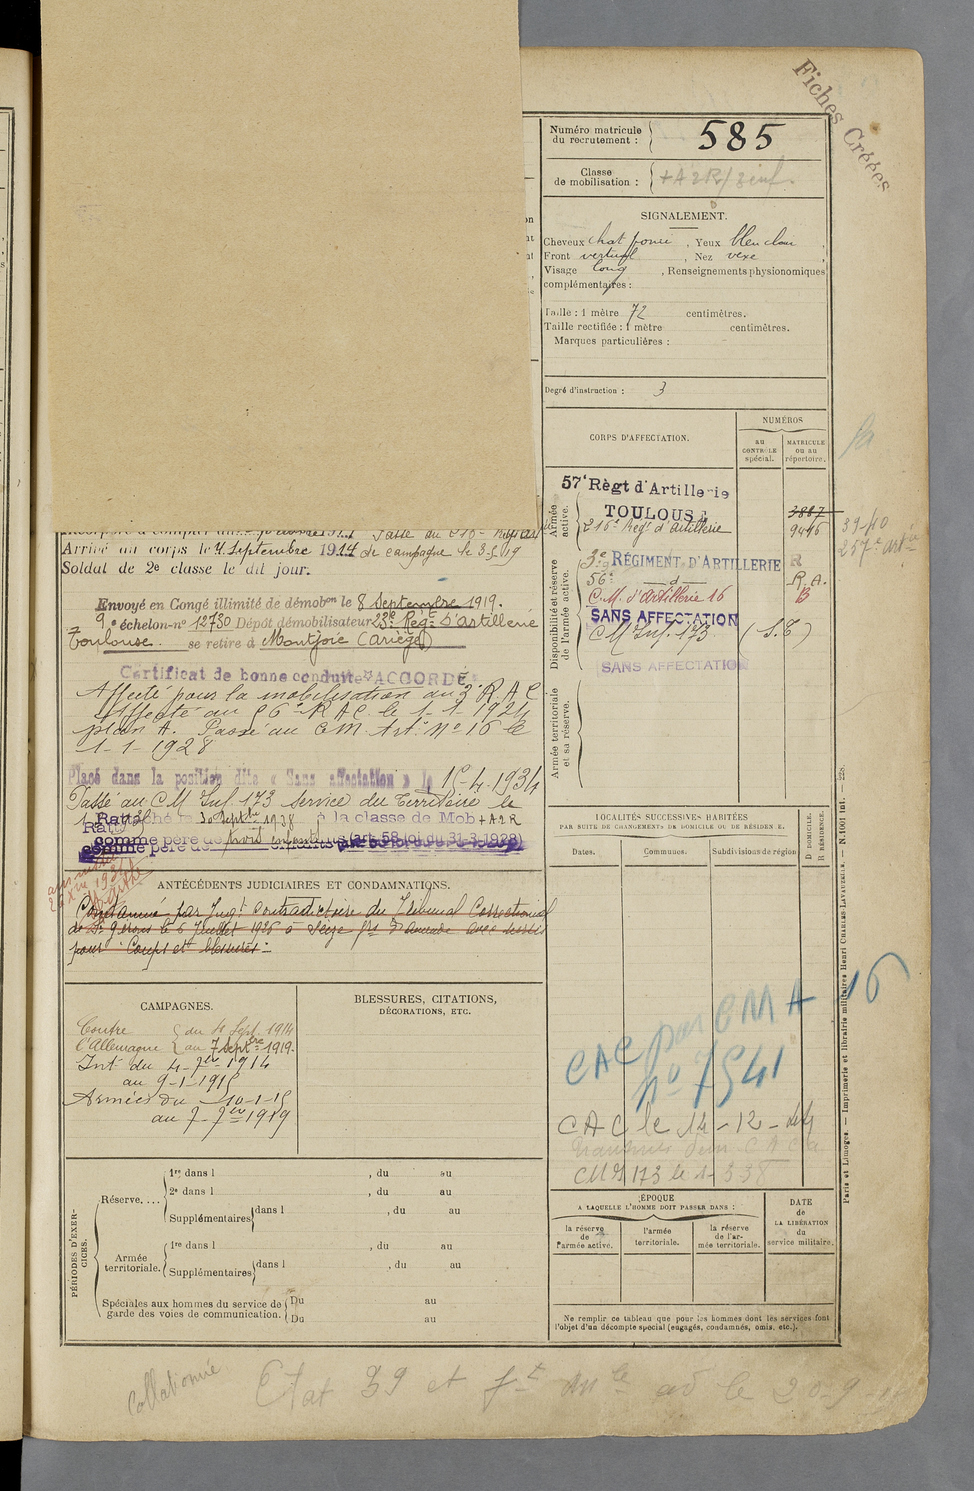 Fiches Créées
Numéro matricule du recrutement : 585
Classe de mobilisation : + A2R/
SIGNALEMENT.
Cheveux chat foncé, Yeux bleu clair,
Front vertical, Nez vexe,
Visage long, Renseignements physionomiques
complémentaires :
Taille : 1 mètre 72 centimètres.
Taille rectifiée : 1 mètre centimètres.
Marques particulières :
Degré d'instruction : 3
CORPS D'AFFECTATION.
NUMÉROS
au CONTRÔLE spécial.
MATRICULE ou au répertoire.
Armée active.
57e Règt d'Artillerie
TOULOUSE
3887
216e Reg. d'artillerie 9446
39-40
257e art
Disponibilité et réserve de l'armée active.
3e RÉGIMENT D'ARTILLERIE R
56e d R.A.
C.M. d'artillerie 16 B
SANS AFFECTATION
CM Inf. 173 (S.T)
SANS AFFECTATION
Armée territoriale et sa réserve.
Passé au 216e Reg
Arrivé au corps le 4 Septembre 1914 de campagne le 3-5-19
Soldat de 2e classe le dit jour.
Envoyé en Congé illimité de démobon le 8 Septembre 1919.
9e échelon-no 12730 Dépôt démobilisateur 23e Reg. d'artillerie
Toulouse. se retire à Montjoie (Ariège)
Certificat de bonne conduite ACCORDÉ
Affecté pour la mobilisation au 3e R.A.C
Affecté au 56e R.A.C. le 1-1-1924
plan A. Passé au C.M. Art. No 16 le
1-1-1928
Placé dans la position dite « Sans affectation » le 15-4-1934
Passé au CM Inf. 173 service du Territoire le
Rattaché le 30 Septbre 1938 à la classe de Mob + A2R
comme père de trois enfants (art 58 loi du 31-3-1928)
ANTÉCÉDENTS JUDICIAIRES ET CONDAMNATIONS.
Condamné par Jugt contradictoire du Tribunal Correctionnel
de St Girons le 6 Juillet 1926 à Seize frs d'amende avec sursis
pour "Coups et blessures"
CAMPAGNES.
Contre l'Allemagne { du 4 Sept. 1914
au 7 septbre 1919.
Int. du 4-7bre 1914
au 9-1-1915
Armées du 10-1-15
au 7-7bre 1919
BLESSURES, CITATIONS,
DÉCORATIONS, ETC.
LOCALITÉS SUCCESSIVES HABITÉES
PAR SUITE DE CHANGEMENTS DE DOMICILE OU DE RÉSIDENCE.
Dates. Communes. Subdivisions de région
D DOMICILE. R RÉSIDENCE.
CAC par CMA 16
no 7541
CAC le 14-12-
CM I 173 le 1-3 38
PÉRIODES D'EXERCICES.
Réserve. ...
1re dans l , du au
2e dans l , du au
Supplémentaires { dans l , du au
Armée territoriale.
1re dans l , du au
Supplémentaires { dans l , du au
Spéciales aux hommes du service de garde des voies de communication. { Du au
Du au
ÉPOQUE
A LAQUELLE L'HOMME DOIT PASSER DANS :
la réserve de l'armée active.
l'armée territoriale.
la réserve de l'armée territoriale.
DATE de LA LIBÉRATION du service militaire.
Ne remplir ce tableau que pour les hommes dont les services font
l'objet d'un décompte spécial (engagés, condamnés, omis, etc.).
Paris et Limoges. — Imprimerie et librairie militaires Henri CHARLES-LAVAUZELLE. — N 1001 int. — 228.
Collationné
Etat 39 et fst le 20-9-